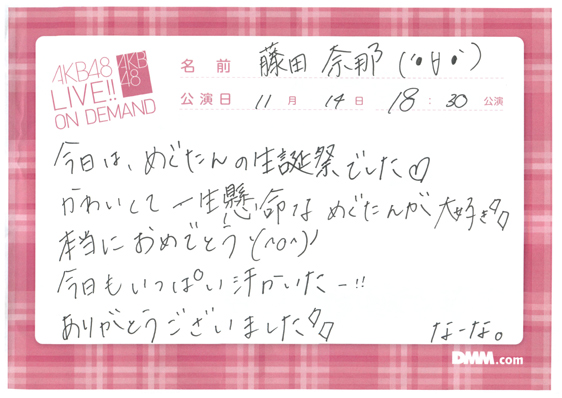 AKB48
LIVE!!
ON DEMAND
AKB
48
名前 藤田 奈那 (´•∀•`)
公演日 11月 14日 18:30 公演
今日は、めぐたんの生誕祭でした♡
かわいくて一生懸命な めぐたんが 大好き
本当に おめでとう ヽ(^o^)ノ
今日もいっぱい汗かいたー!!
ありがとうございました
なーな。
DMM.com